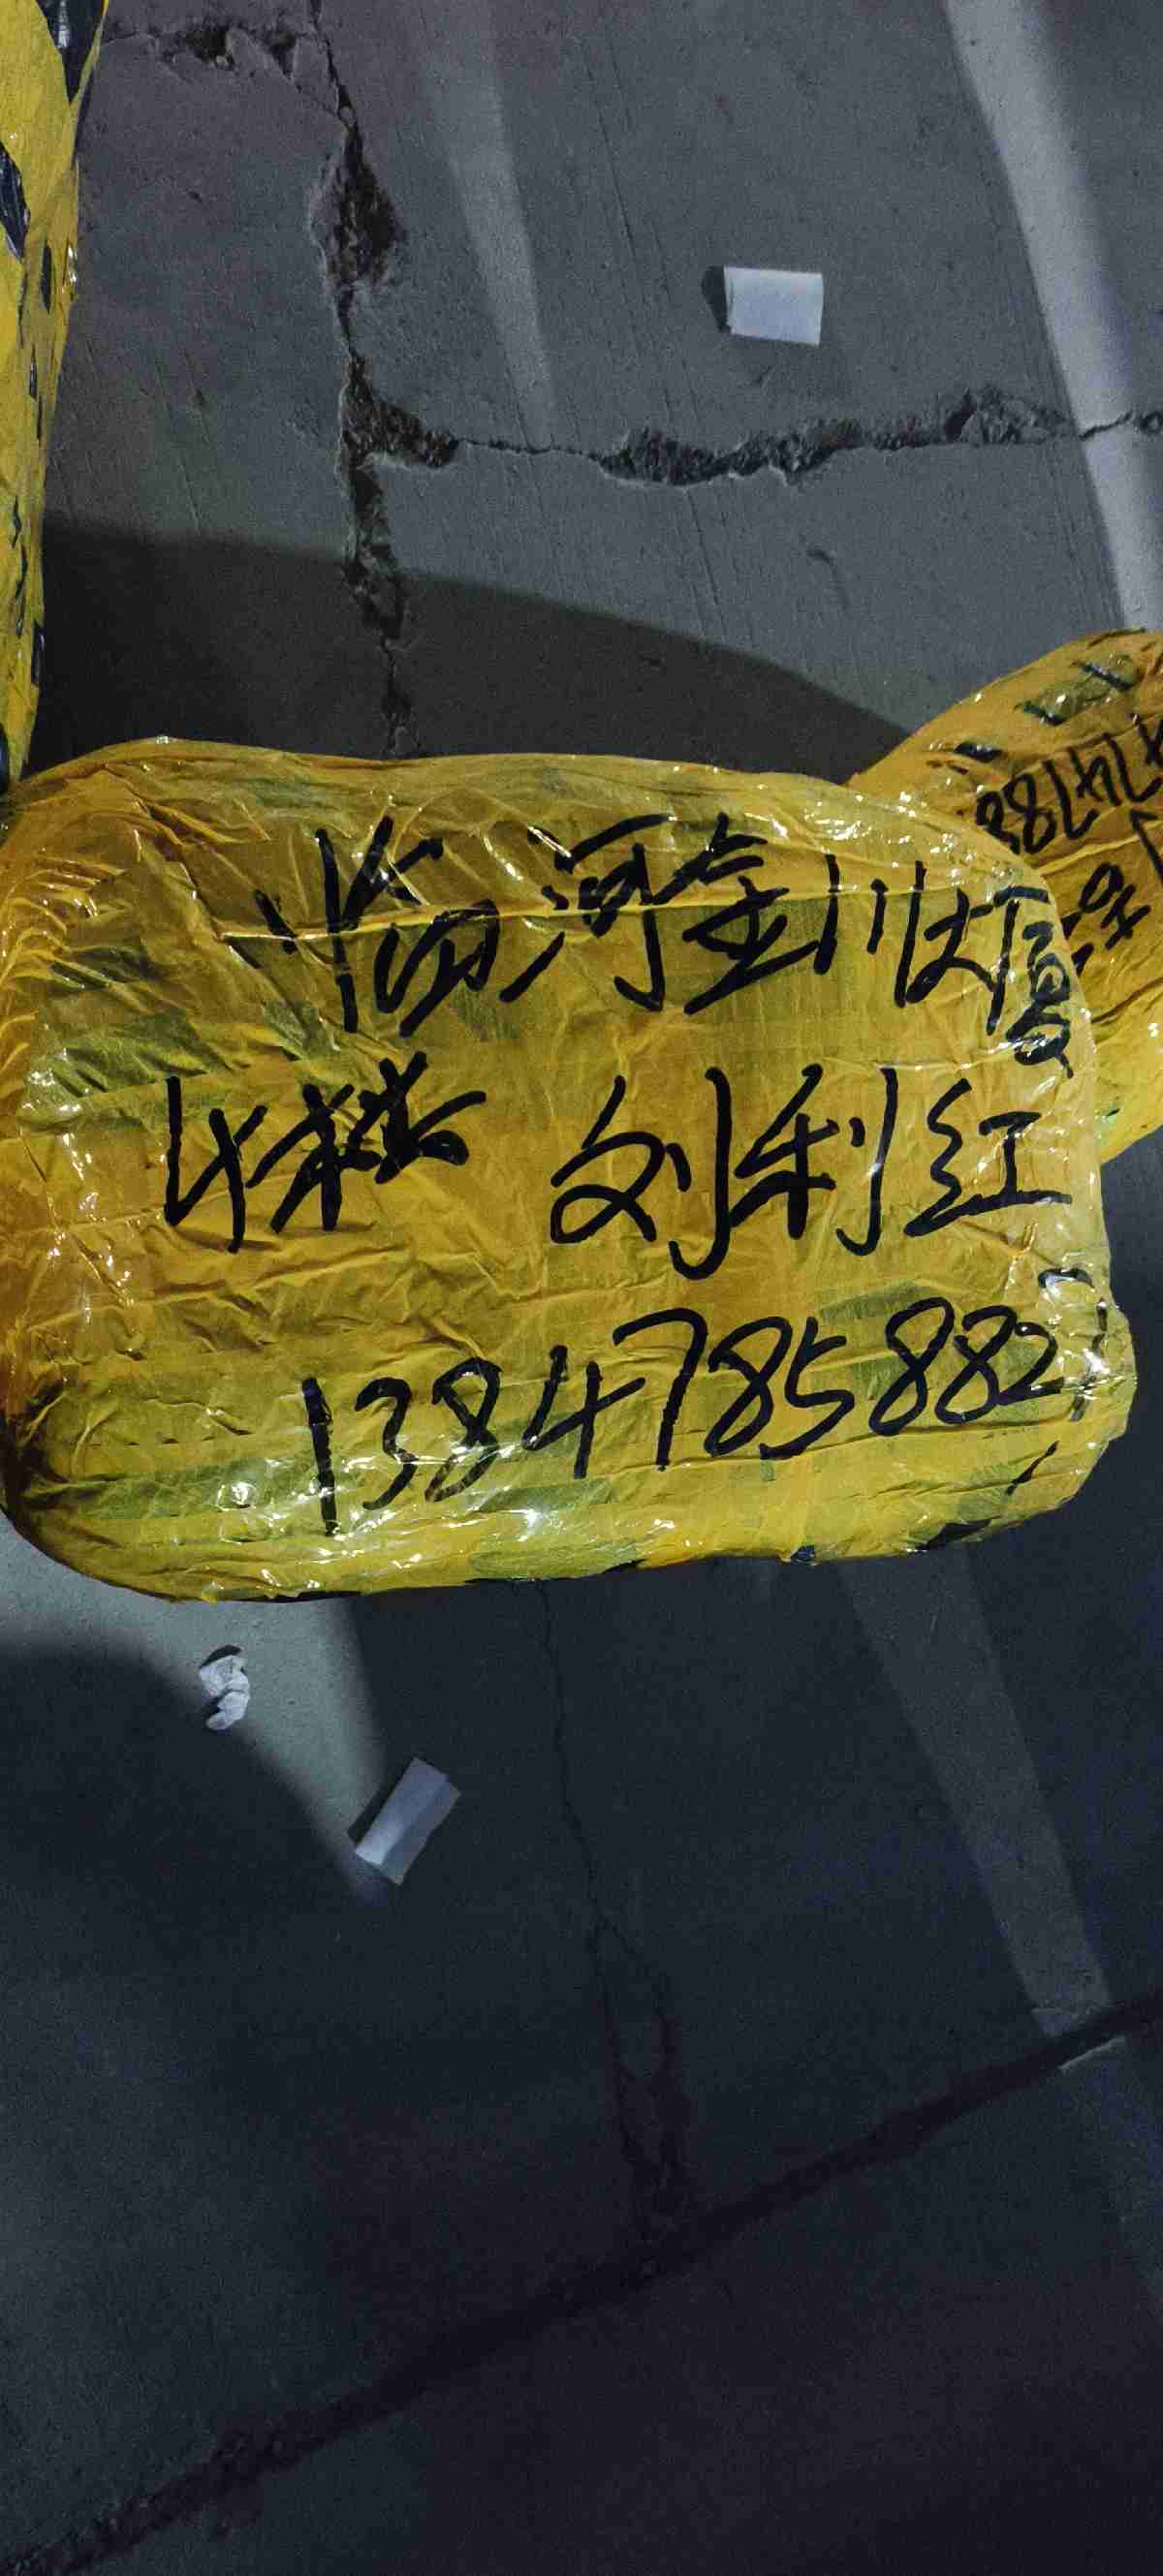 临河金川大厦
4楼 刘利红
13847858882